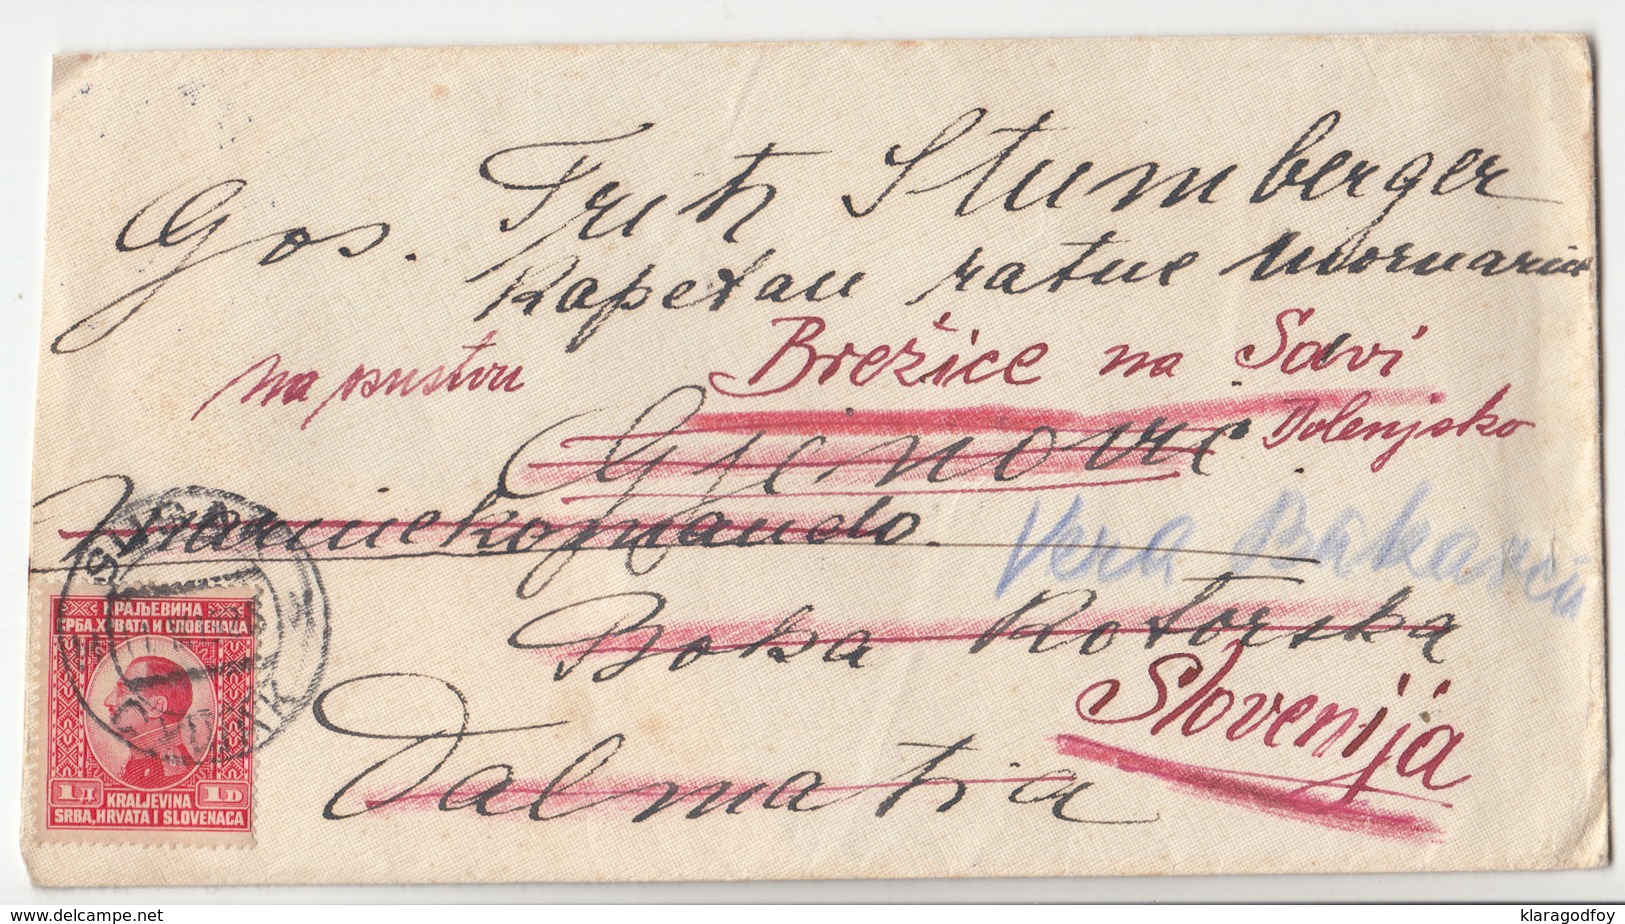 Gos. Fritz Stumberger
Kapetan ratne mornarice
na pustvu Brežice na Savi
Dolenjsko
Gjenovic
Marinekomando.
Vera
Boka Kotorska
Slovenija
Dalmatia
КРАЉЕВИНА
СРБА, ХРВАТА И СЛОВЕНАЦА
1 Д 1 D
KRALJEVINA
SRBA, HRVATA I SLOVENACA
www.delcampe.net
klaragodfoy